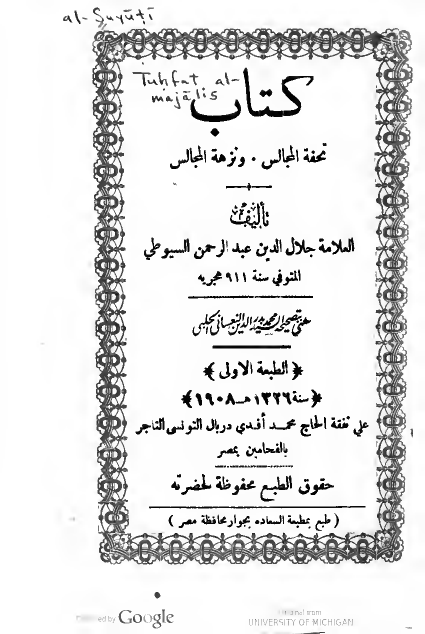 al-Suyūṭī
Tuḥfat al-
majālis
كتاب
تحفة المجالس . ونزهة المجالس
تأليف
العلامة جلال الدين عبد الرحمن السيوطي
المتوفي سنة ٩١١ هجريه
عني بتصحيحه محمد بدر الدين النعساني الحلبي
﴿ الطبعة الاولى ﴾
﴿ سنة ١٣٢٦هـ ـ ١٩٠٨ ﴾
علي نفقة الحاج محمد أفندي دربال التونسى التاجر
بالفحامين بمصر
حقوق الطبع محفوظة لحضرته
( طبع بمطبعة السعاده بجوار محافظة مصر )
Digitized by Google
Original from
UNIVERSITY OF MICHIGAN